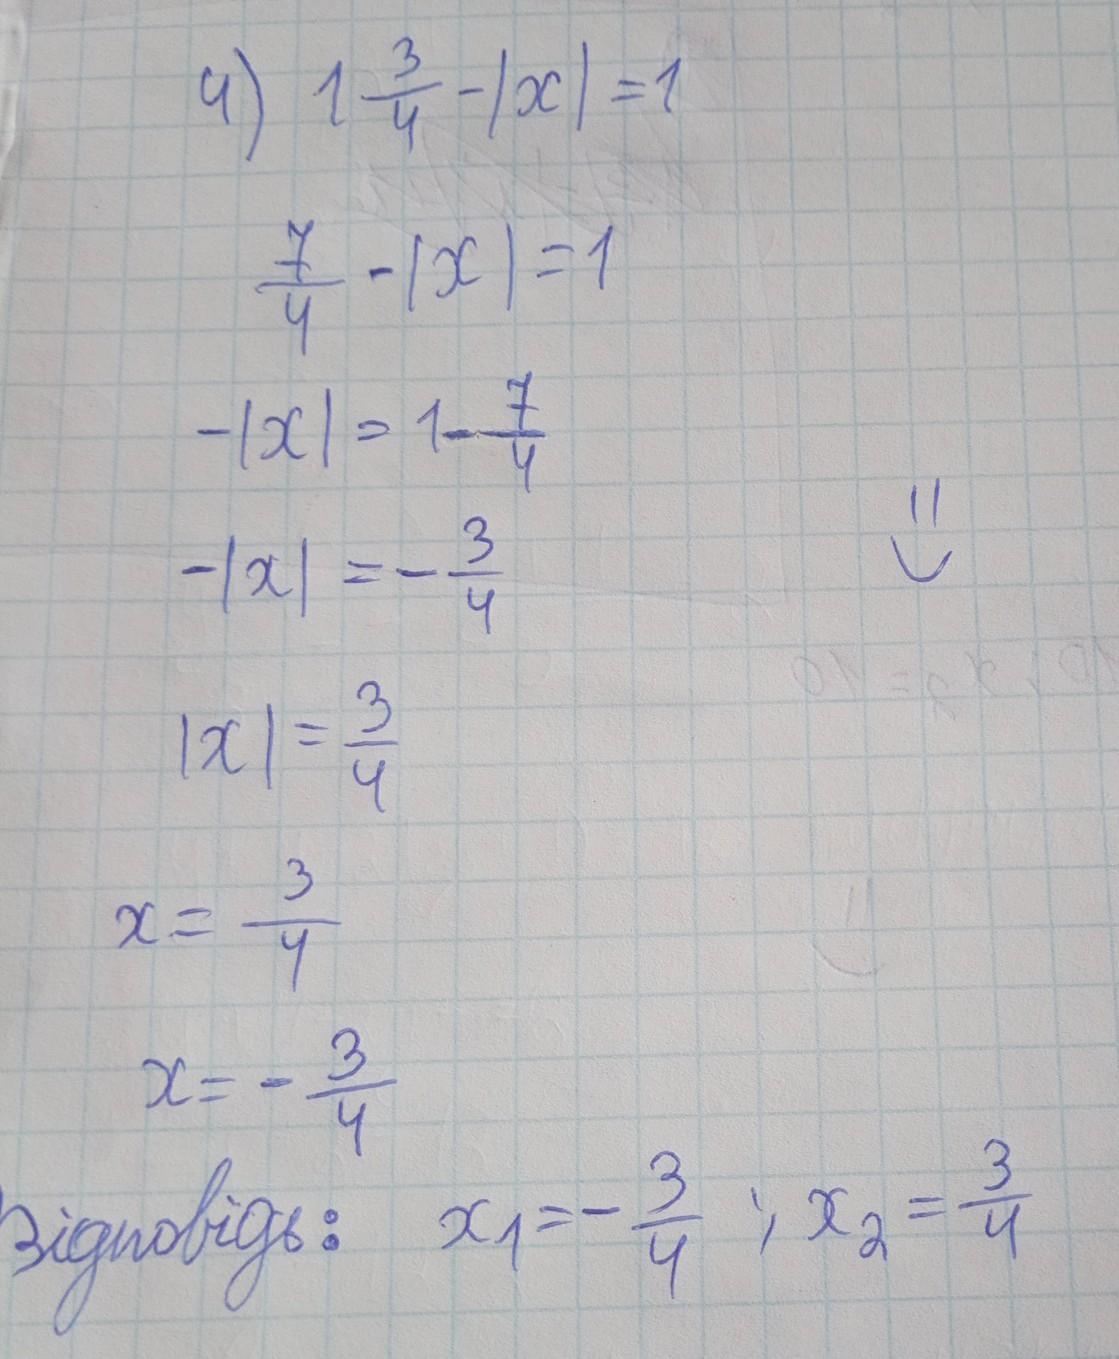 4) 1 3/4 - |x| = 1
7/4 - |x| = 1
-|x| = 1 - 7/4
-|x| = - 3/4
|x| = 3/4
x = 3/4
x = - 3/4
Відповідь: x₁ = - 3/4 ; x₂ = 3/4